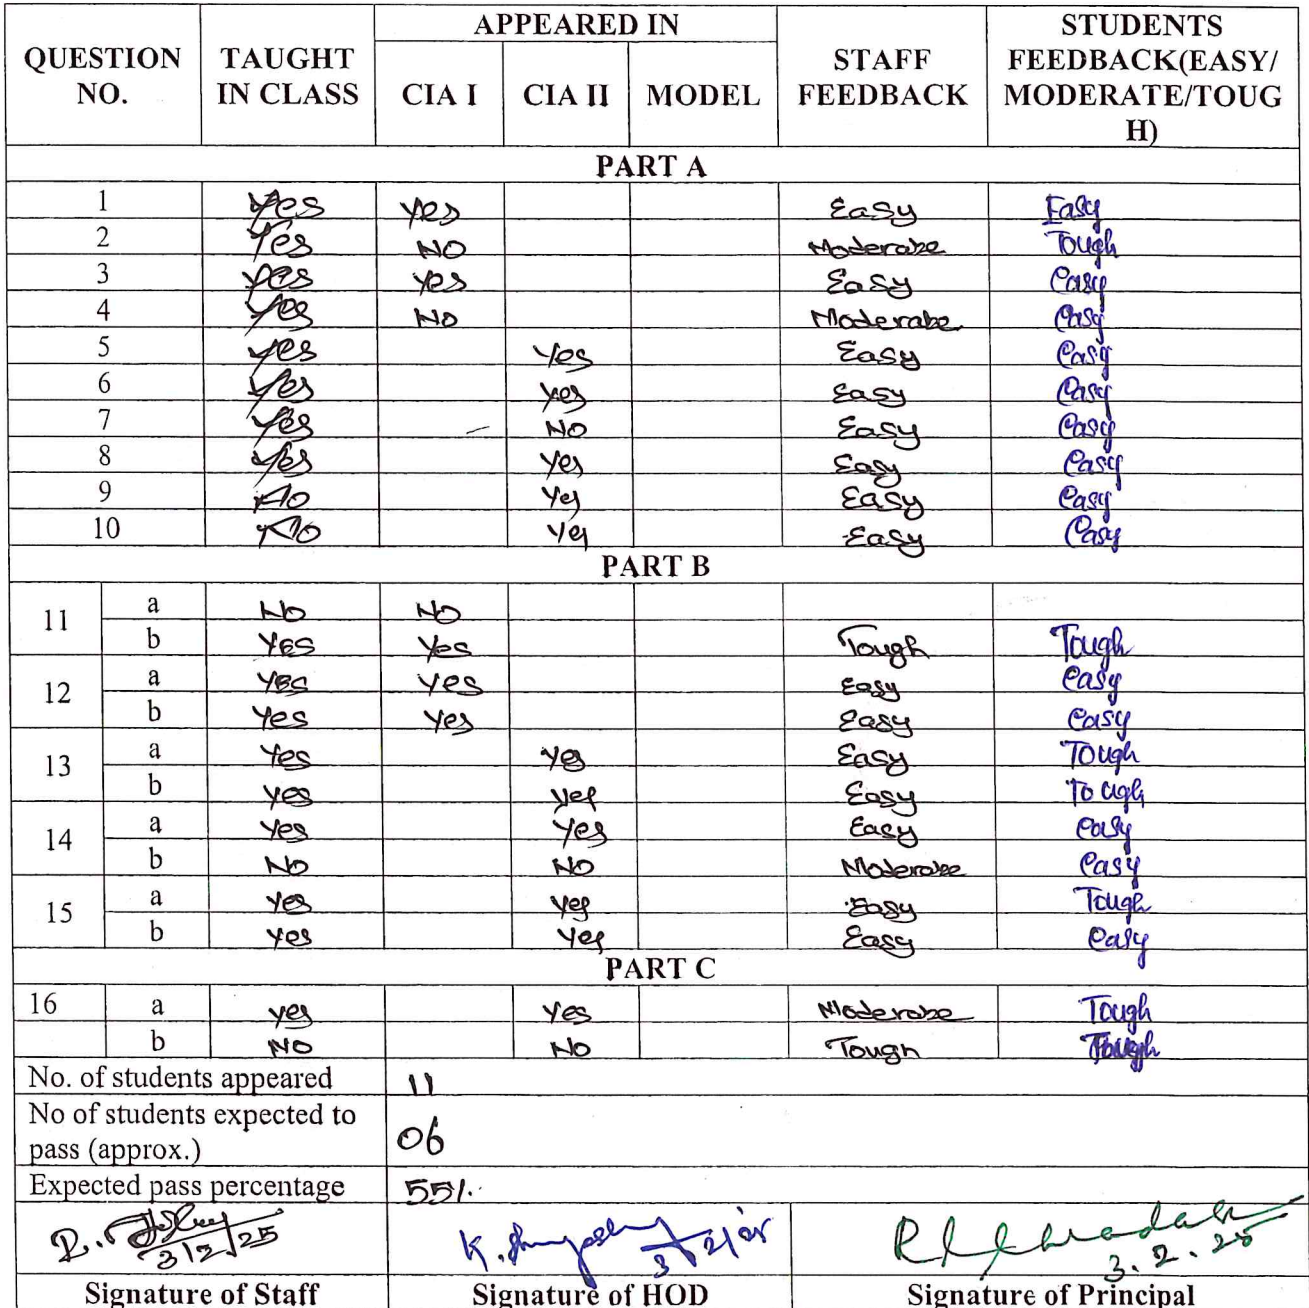 QUESTION NO. TAUGHT IN CLASS APPEARED IN STAFF FEEDBACK STUDENTS FEEDBACK(EASY/MODERATE/TOUGH)
CIA I CIA II MODEL
PART A
1 Yes Yes Easy Easy
2 Yes NO Moderate Tough
3 Yes Yes Easy Easy
4 Yes No Moderate Easy
5 Yes Yes Easy Easy
6 Yes Yes Easy Easy
7 Yes NO Easy Easy
8 Yes Yes Easy Easy
9 No Yes Easy Easy
10 No Yes Easy Easy
PART B
11 a NO NO
b Yes Yes Tough Tough
12 a Yes Yes Easy Easy
b Yes Yes Easy Easy
13 a Yes Yes Easy Tough
b Yes Yes Easy Tough
14 a Yes Yes Easy Easy
b NO NO Moderate Easy
15 a Yes Yes Easy Tough
b Yes Yes Easy Easy
PART C
16 a Yes Yes Moderate Tough
b NO NO Tough Tough
No. of students appeared 11
No of students expected to pass (approx.) 06
Expected pass percentage 55%
3/2/25 3/2/25 3.2.25
Signature of Staff Signature of HOD Signature of Principal